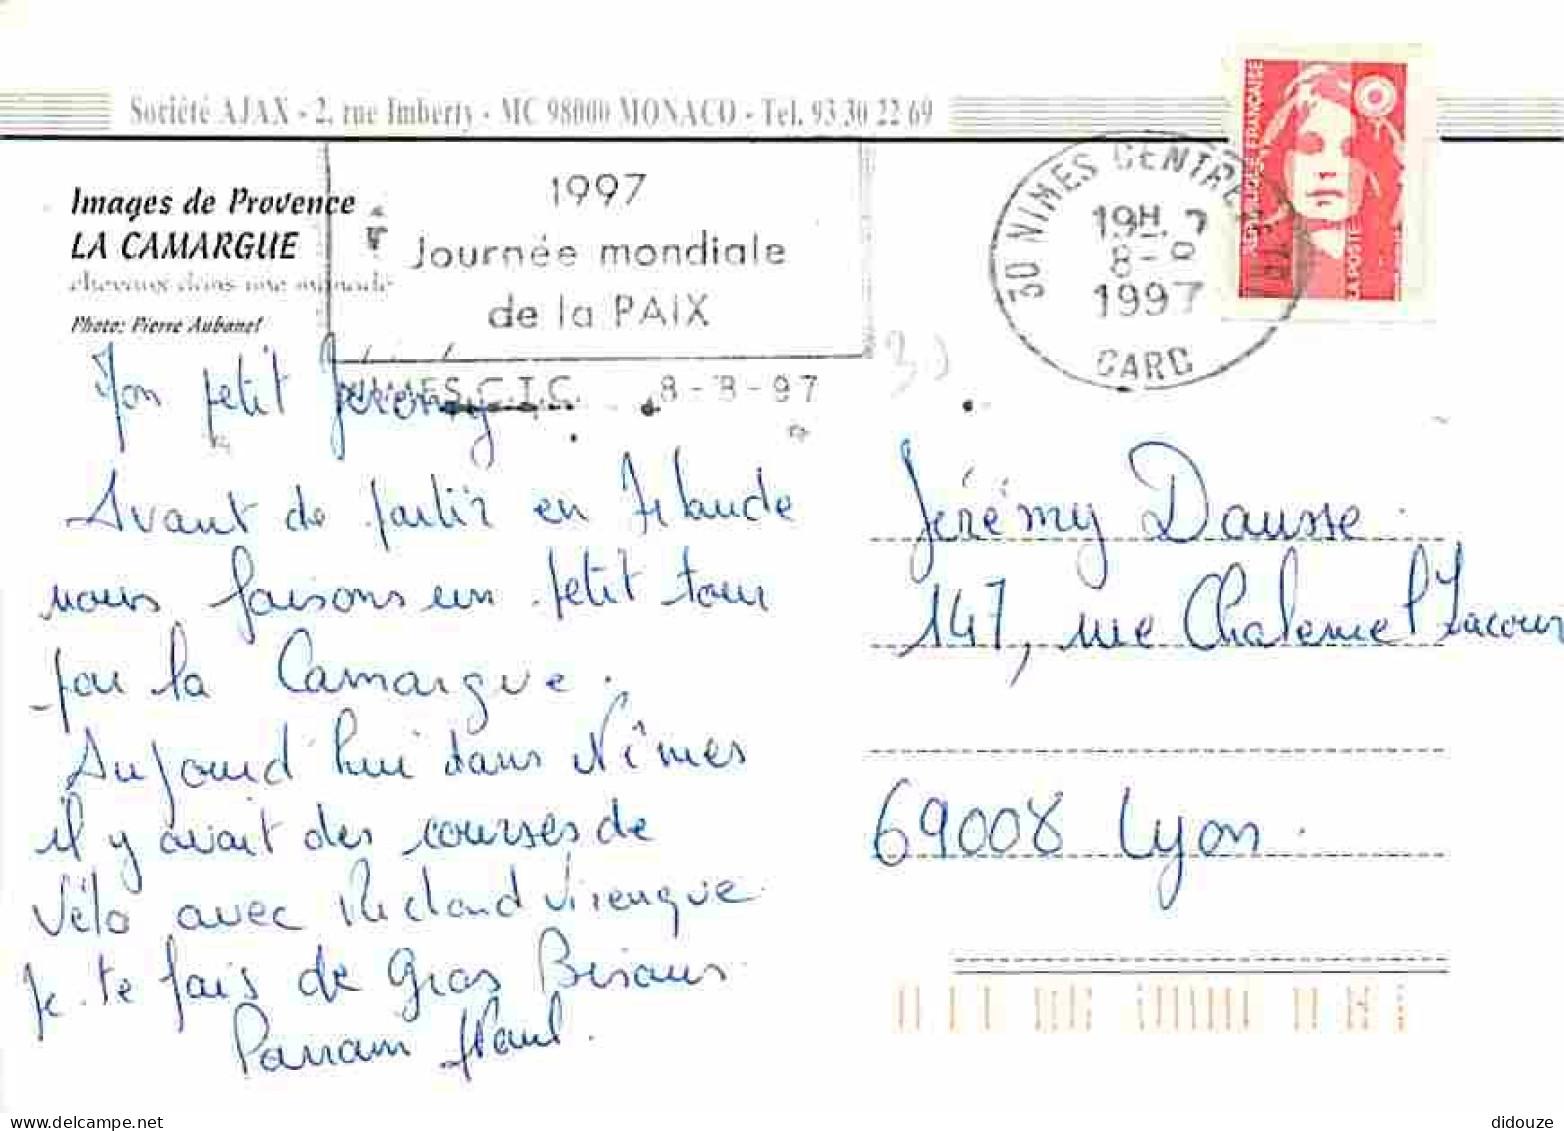 Société AJAX - 2, rue Imberty - MC 98000 MONACO - Tel. 93 30 22 69
RÉPUBLIQUE FRANÇAISE
LA POSTE
30 NIMES CENTRE
19H
8-8
1997
GARD
1997
Journée mondiale
de la PAIX
NIMES C.T.C. 8-8-97
Images de Provence
LA CAMARGUE
chevaux dans une manade
Photo: Pierre Aubanel
Mon petit Jérémy
Avant de partir en Irlande
nous faisons un petit tour
par la Camargue.
Aujourd'hui dans Nîmes
il y avait des courses de
vélo avec Richard Virenque
Je te fais de Gros Bisous
Parrain
Jérémy Dausse
147, rue
69008 Lyon.
didouze